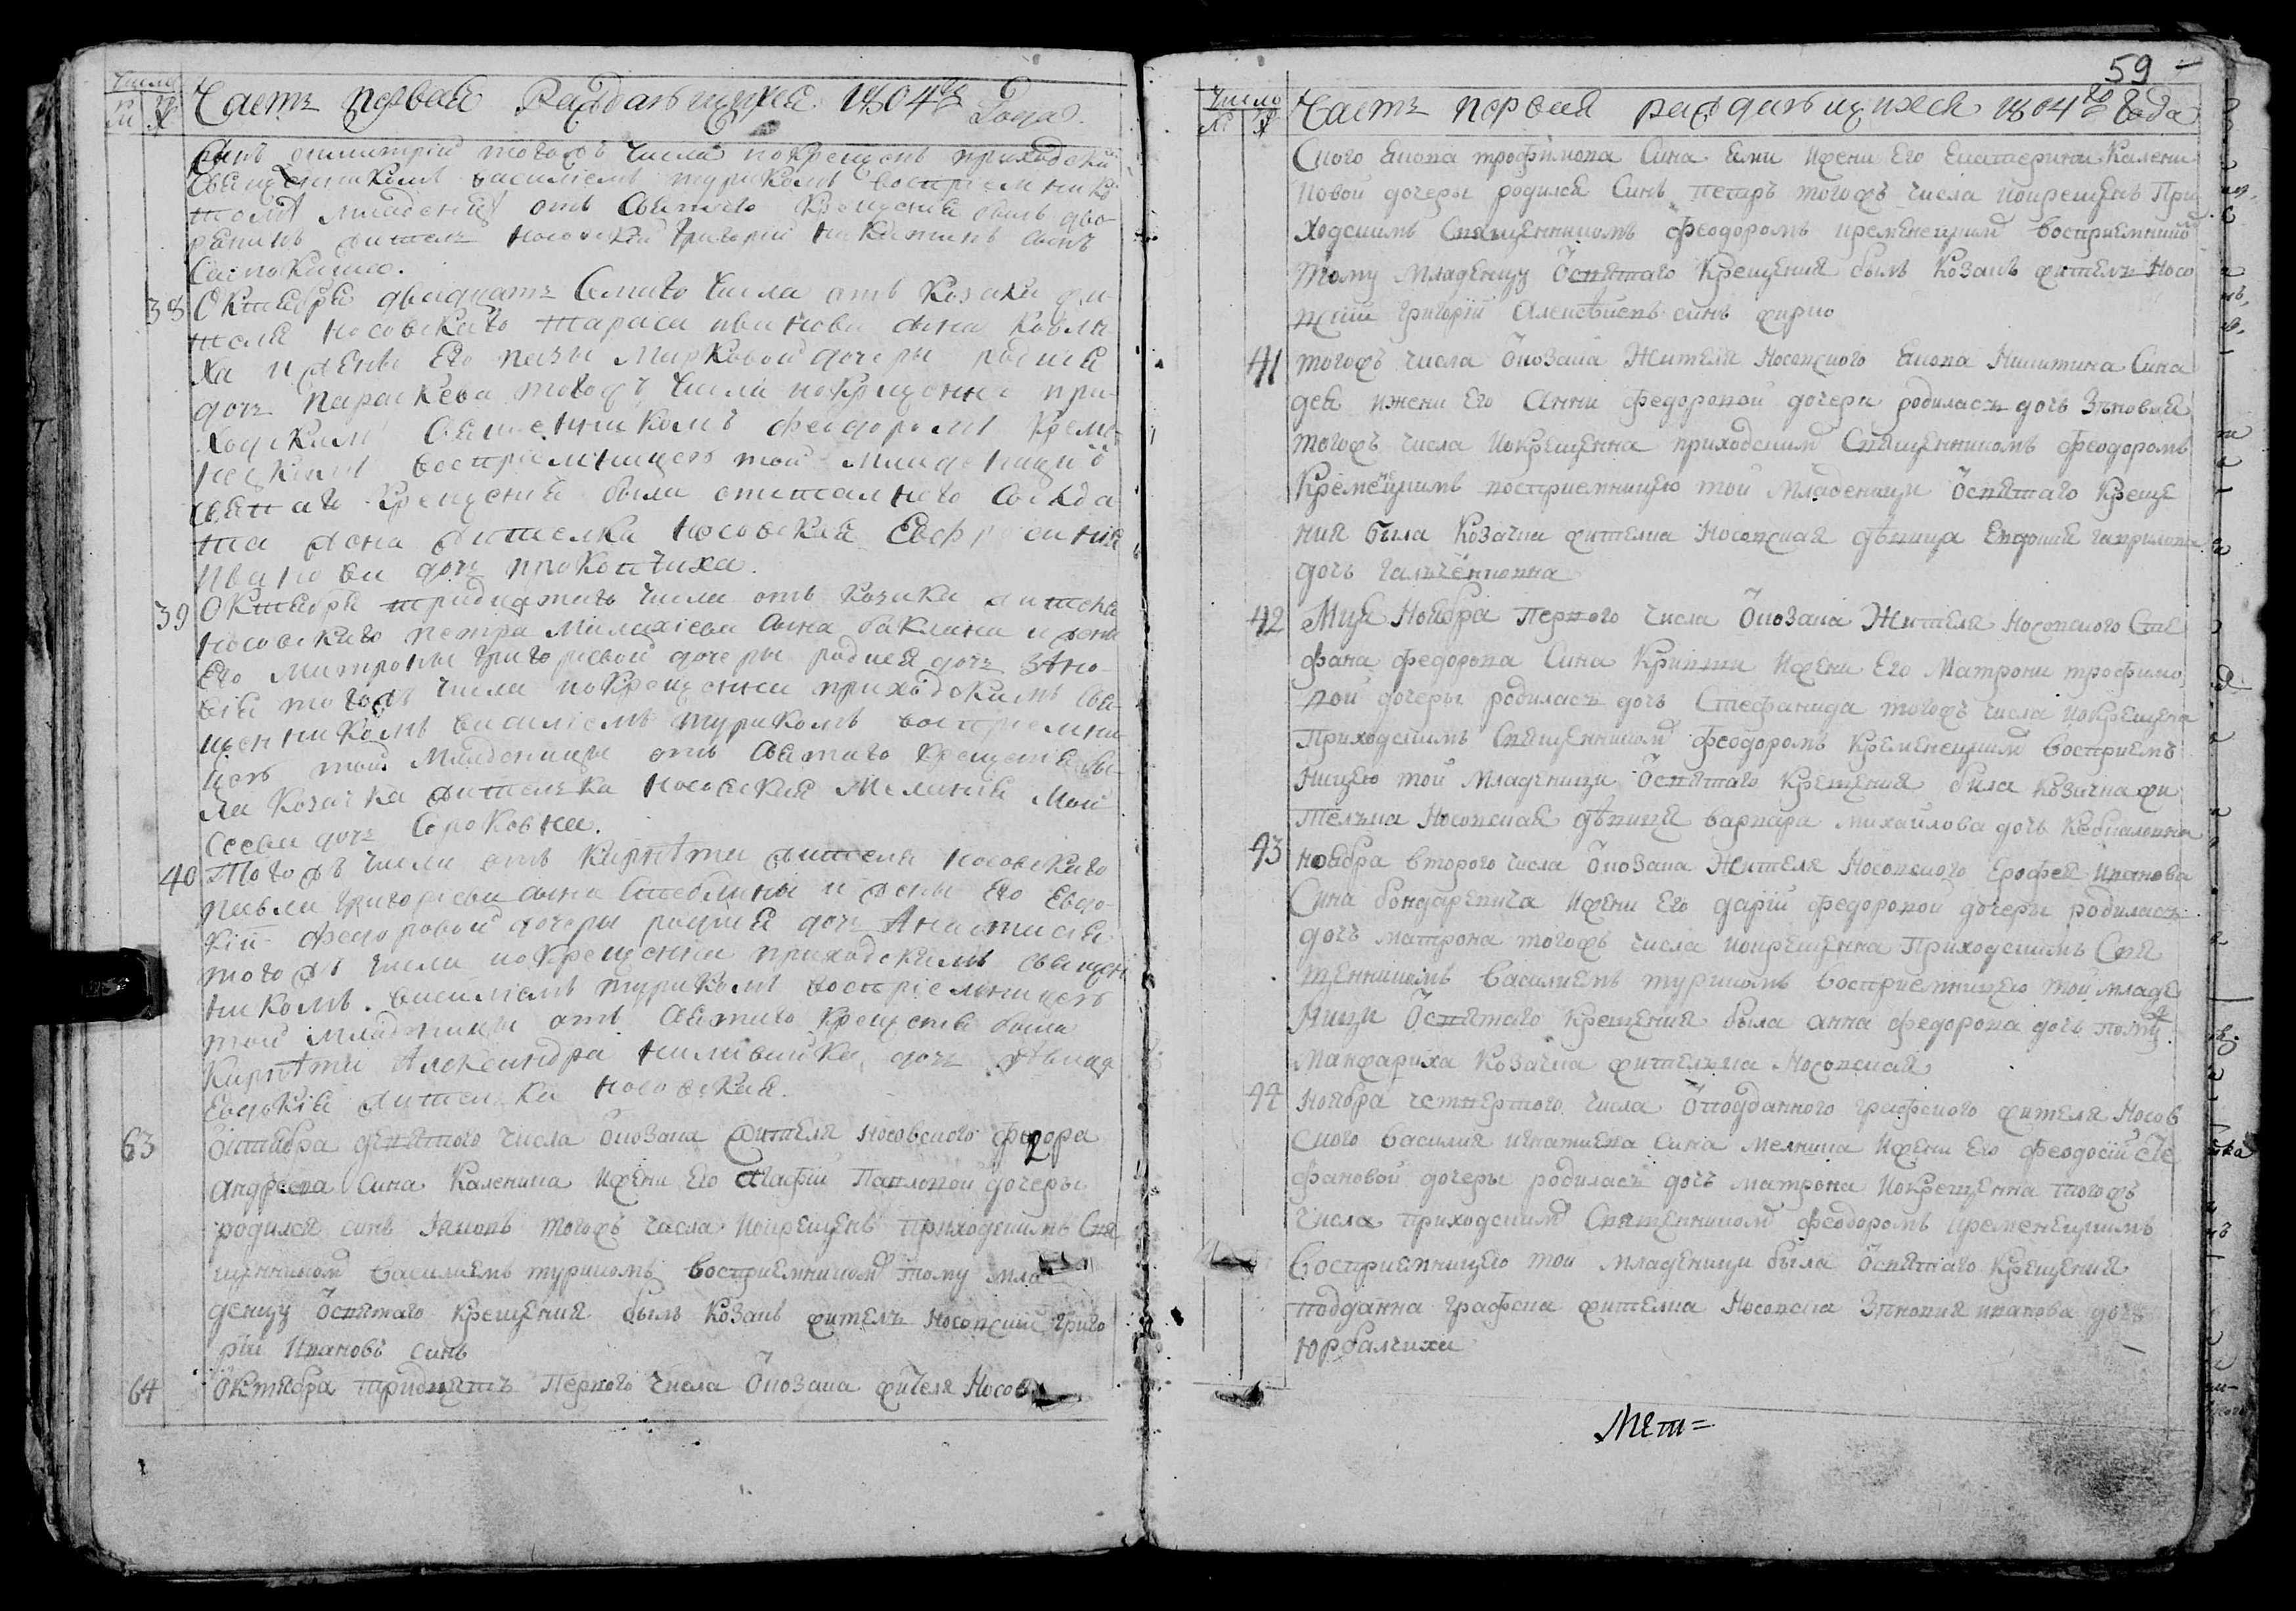 Число
М Ж Часть первая Раждающихся 1804го Года.
сынъ димитрій тогожъ числа покрещенъ приходскій
священникомъ василіемъ туркомъ восприемник
томи младенцу отъ святаго крещенія былъ дво
рянинъ жителъ носовскій григорій никитинъ сынъ
38 Октября двадцать семаго числа отъ козака жи-
теля носовскаго тараса иванова сына ковли
ха и жены его марковой дочеры родися
дочъ параскева тогожъ числа покрещенна при-
ходскимъ священникомъ феодоромъ креме-
нецкимъ восприемницею той младеницы ѿ
святаго крещенія была
жена жителка носовская Евфросинія
иванова дочъ прокопчиха.
39 Октября тридцятаго числа отъ козака жителя
носовскаго петра сына баклана и жены
его матроны григориевой дочеры родися дочъ зѣно-
вія тогожъ числа покрещенна приходскимъ свя-
щенникомъ василіемъ туркомъ восприемни
цею той младеницы отъ святаго крещенія бы-
ла козачка жителка носовская меланія Мой
сеева дочъ Сороковна.
40 Тогожъ числа отъ жителя носовскаго
павла григорієва сына Стеблины и жены его евдо-
кіи федоровой дочеры родися дочъ Анастасія
тогожъ числа покрещенна приходскимъ священ
никомъ василіемъ туркомъ восприемницею
той младеницы отъ святаго крещенія была
Александра дочъ дѣвица
Евдокія жителка носовская.
63 Октября девятого числа ѿкозака жителя носовского федора
андреева сина каленика ижени его агафіи Павловой дочеры
родился синъ Іаковъ тогожъ числа покрещенъ приходскимъ Свя
щенником василиемъ туркомъ восприемником тому мла
денцу ѿсвятаго крещения былъ козакъ жителъ носовский григо
рій Ивановъ синъ
64 Октября тридцять Первого числа ѿкозака жителя Носов

59
Число
М Ж Часть первая раждающихся 1804го Года
Ского Якова трофимова Сина ижени его екатерини калени
ковой дочеры родился Синъ петръ тогожъ числа покрещенъ При
ходскимъ Священникомъ феодоромъ кременецким восприемником
Тому Младенцу ѿсвятаго Крещения былъ козакъ жителъ Носо
вский григорій Алексѣиевъ синъ
41 тогожъ числа ѿкозака Жителя Носовского Якова Никитина Сина
ижени его Анни федоровой дочери родиласъ дочъ Зѣновия
тогожъ числа покрещенна приходским Священникомъ феодоромъ
Кременецкимъ восприемницею той младеници ѿсвятаго креще
ния была козачка жителка Носовская дѣвица Евдокия гаврилова
дочъ галченковна
42 Мця Ноября Первого числа ѿкозака Жителя Носовского Сте
фана федорова Сина Ижени его Матрони трофимо
вой дочеры родиласъ дочъ Стефанида тогожъ числа покрещена
Приходскимъ Священником феодоромъ Кременецким восприемъ
ницею той младеници ѿсвятаго Крещения была козачка жи
телъка Носовская дѣвица варвара михайлова дочъ
43 ноября второго числа ѿкозака Жителя Носовского Ерофея Иванова
Сина бондаревича Ижени Его дарій федоровой дочери родиласъ
дочъ матрона тогожъ числа покрещенна Приходскимъ Свя
щенникомъ Василиемъ туркомъ восприемницею той младе
ници ѿсвятаго крещения была анна федорова дочъ
козачка жителъка Носовская
44 Ноября четвертого числа ѿподданного графского жителя Носов
ского василия игнатиева сина мелника Ижени Его феодосіи Сте
фановой дочеры родиласъ дочъ матрона покрещенна тогожъ
числа приходским Священником феодоромъ кременецкимъ
Восприемницею той младеници была ѿсвятаго крещения
подданна графска жителка Носовска Зѣновия иванова дочъ
юрбалчиха
Мет=